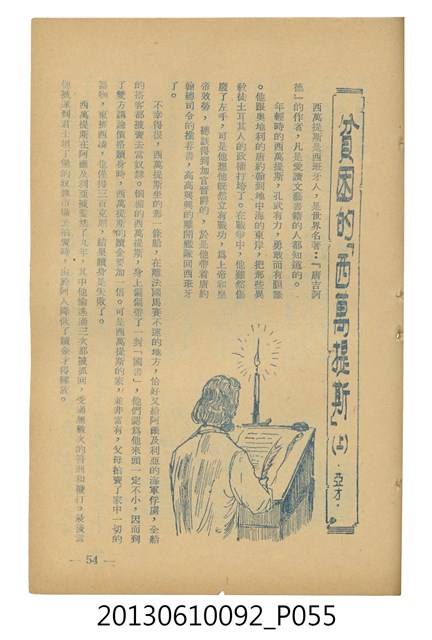 貧困的『西萬提斯』(上)·亞才·
西萬提斯是西班牙人,是世界名著:「唐吉訶
德」的作者,凡是愛讀文藝書籍的人都知道的。
年輕時的西萬提斯,孔武有力,勇敢而有胆識
。他跟奧地利的唐約翰到地中海的東岸,把那些異
教徒土耳其人的政權打垮了。在戰爭中,他雖然傷
廢了左手,可是他想他旣然立有戰功,爲上帝和皇
帝效勞,總該得到加官晋爵的,於是他帶着唐約
翰總司令的推荐書,高高興興的離開艦隊囘西班牙
了。
不幸得很,西萬提斯坐的那一條船,在離法國馬賽不遠的地方,恰好又給阿爾及利亞的海軍俘虜,全船
的搭客都被賣去當奴隸。個個的西萬提斯,身上偏偏帶了一封「國書」,他們認爲他來頭一定不小,因而到
了雙方講論價格贖身時,西萬提斯的贖金要加一倍。可是西萬提斯的家,並非富有,父母拍賣了家中一切的
器物,東拼西湊,也僅得三百克朗,結果贖身是失敗了。
西萬提斯在阿爾及利亞被監禁了九年,其中他偷逃過三次都被抓囘,受過無數次的苦刑和鞭打。最後當
他被運到君士坦丁堡的奴隸市塲去拍賣時,由於阿人降低了贖金才得釋放。
— 54 —
20130610092_P055